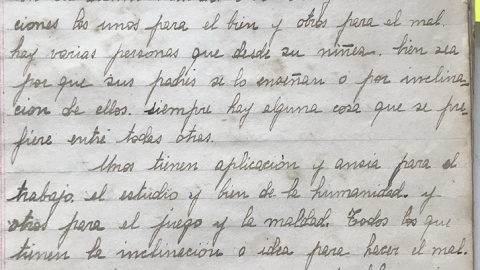 ciones los unos para el bien y otros para el mal.
hay varias personas que desde su niñez. bien sea
por que sus padres se lo enseñan o por inclina-
cion de ellos. siempre hay alguna cosa que se pre-
fiere entre todas otras.
Unos tienen aplicación y ansia para el
trabajo. el estudio y bien de la humanidad. y
otros para el juego y la maldad. Todos los que
tienen la inclinación o idea para hacer el mal.